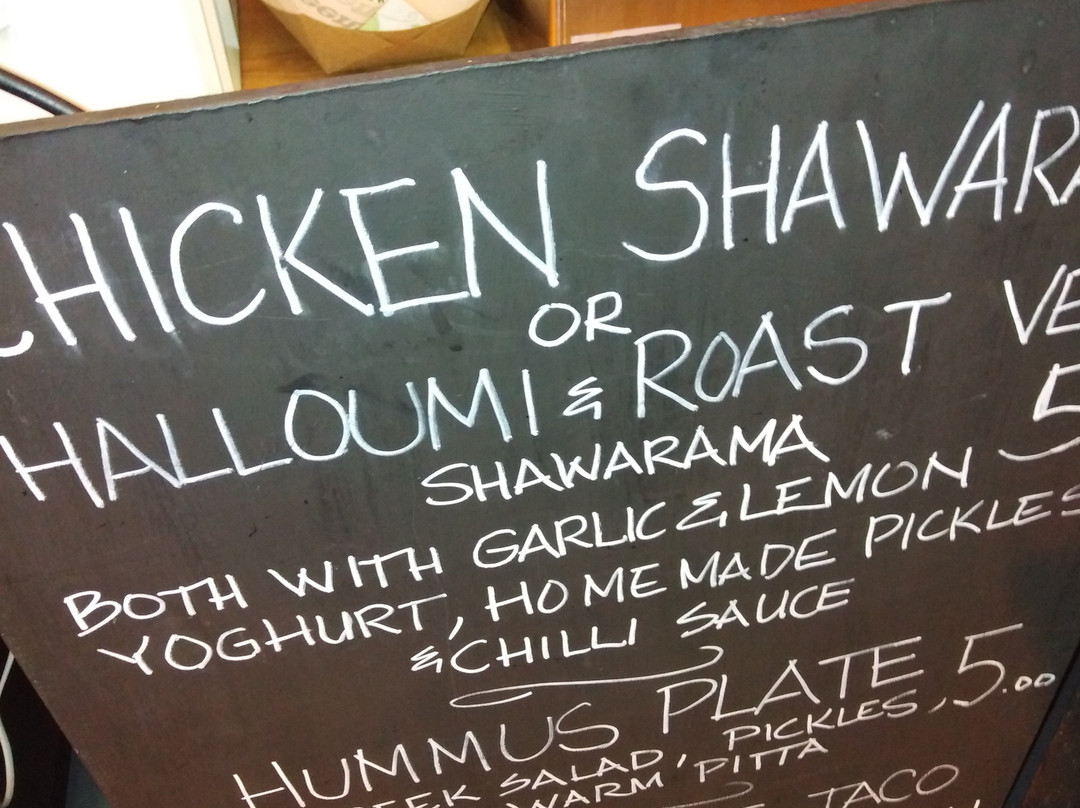 CHICKEN SHAWARA
OR
HALLOUMI & ROAST VE
SHAWARAMA 5
BOTH WITH GARLIC & LEMON
YOGHURT, HOMEMADE PICKLES
& CHILLI SAUCE
HUMMUS PLATE 5.00
EEK SALAD, PICKLES,
WARM PITTA
TACO